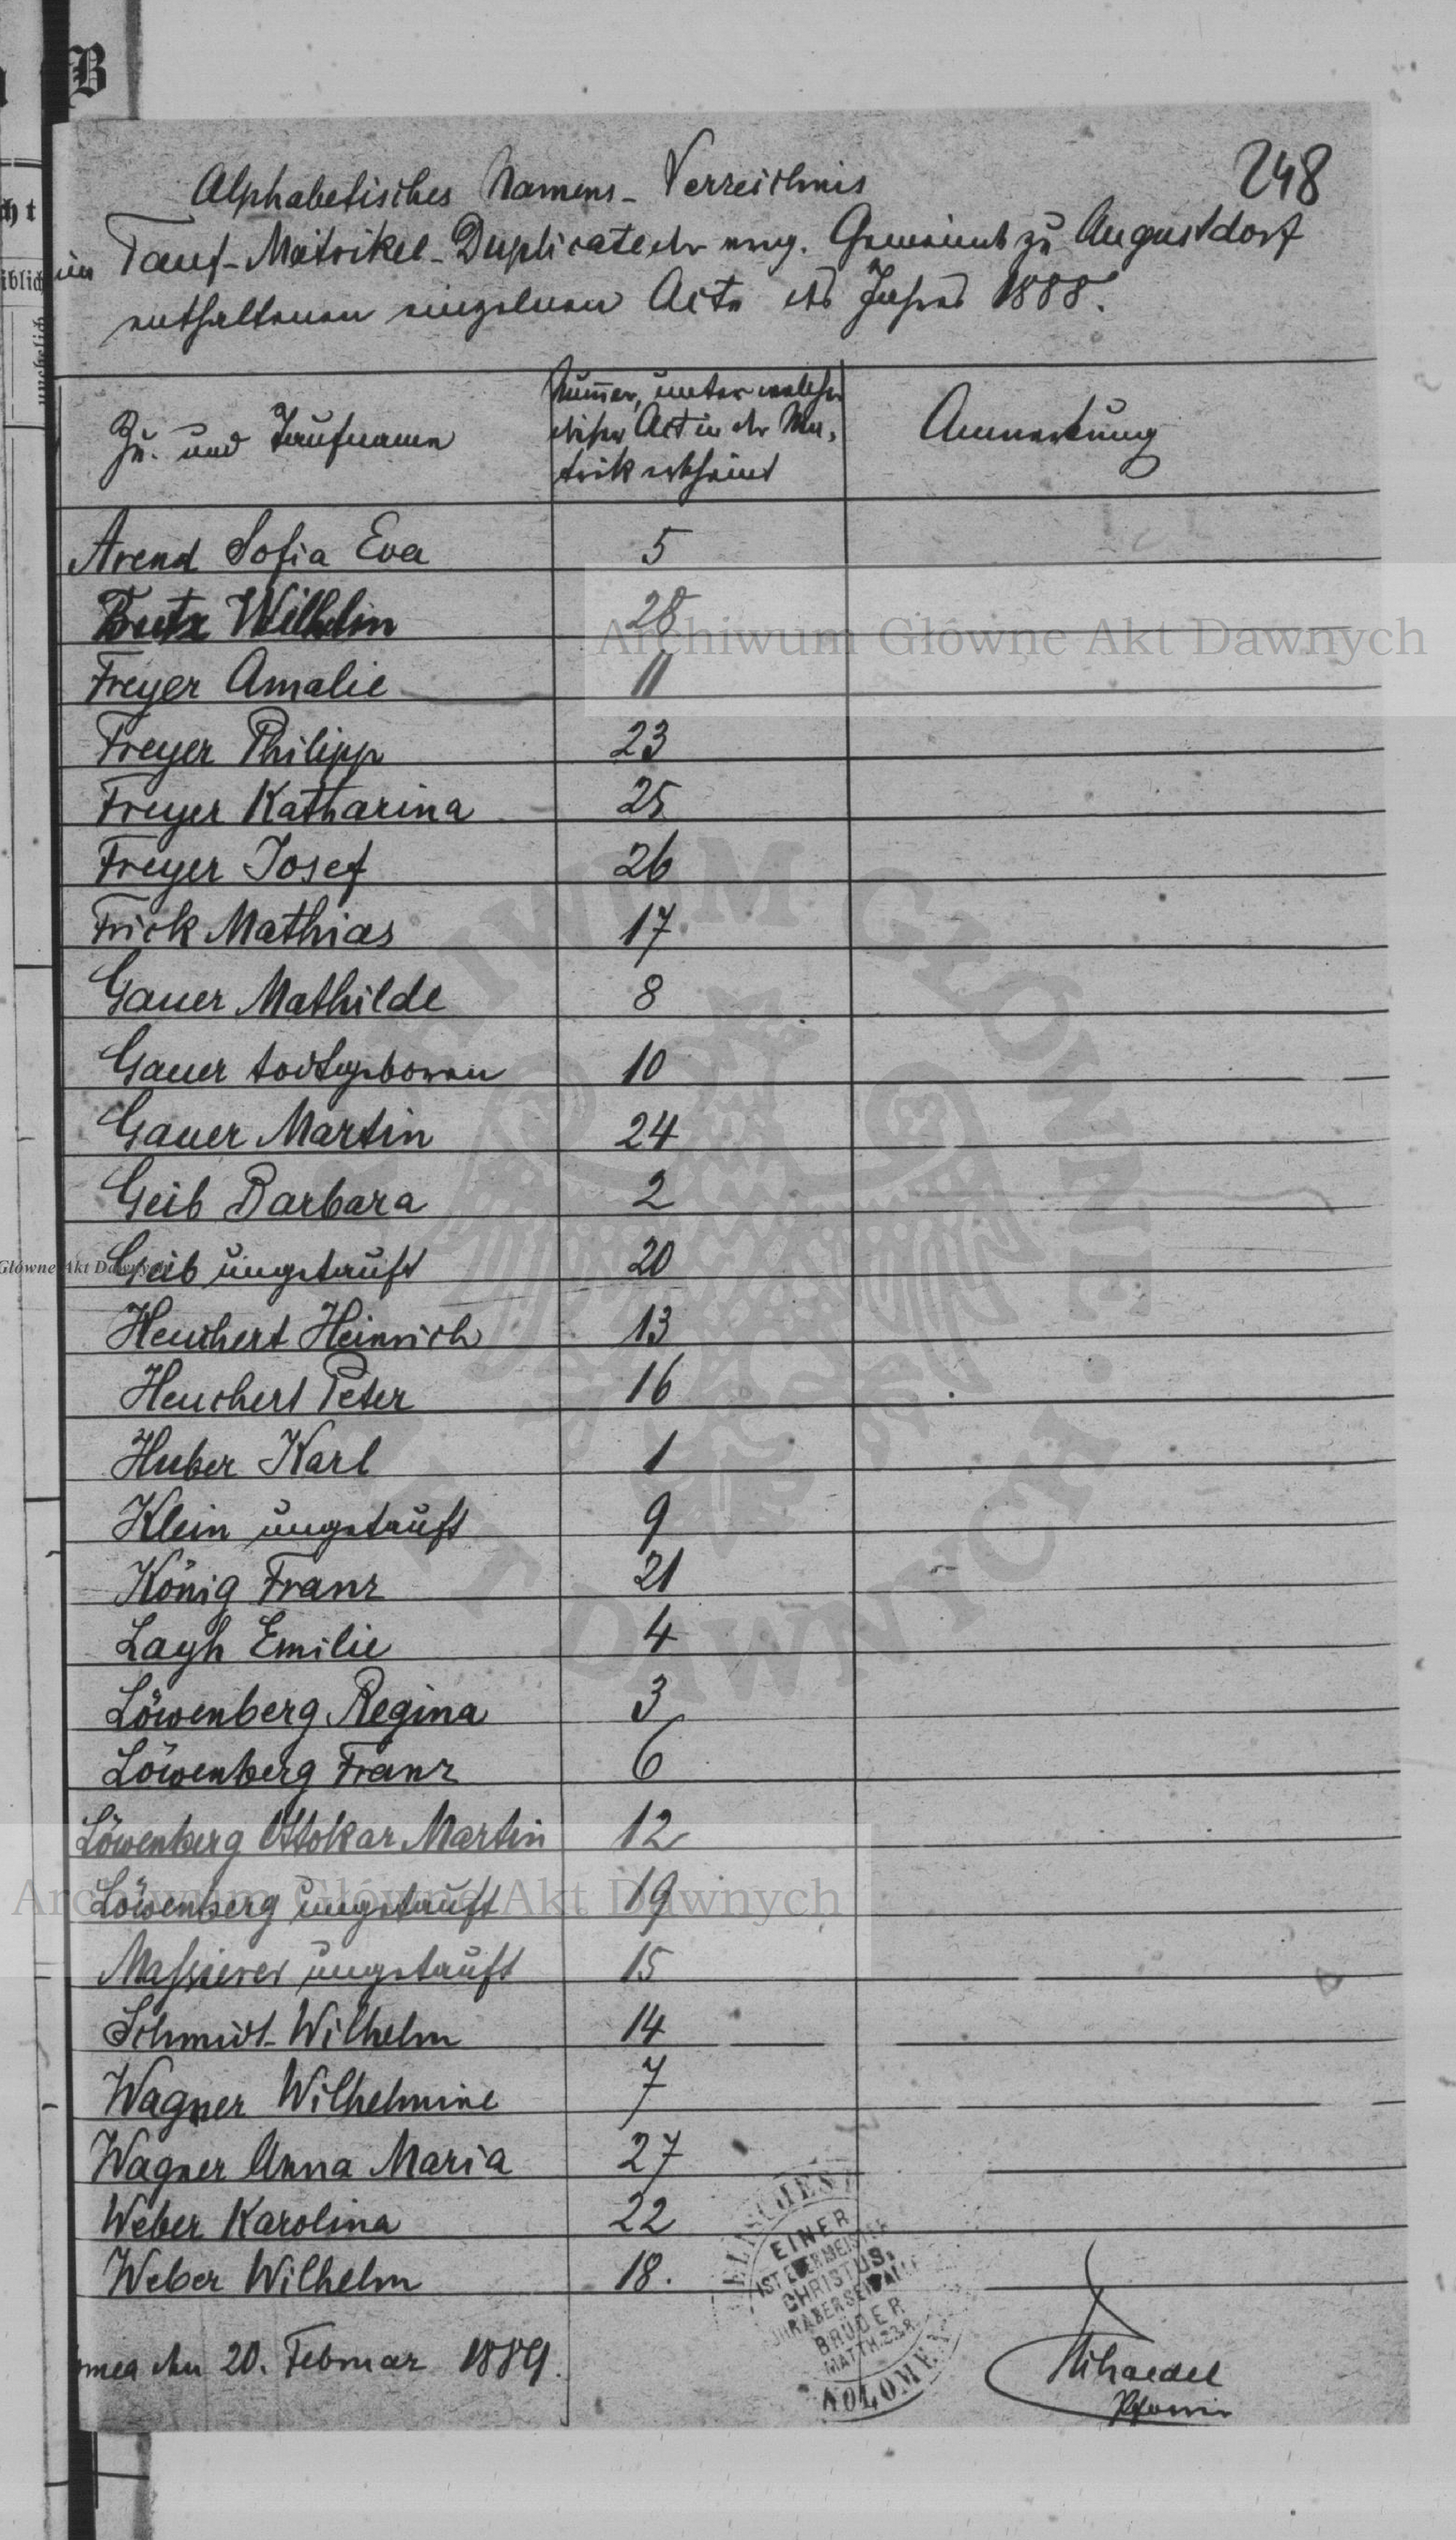 B
248
Alphabetisches Namens-Verzeichnis
im Tauf-Matrikel-Duplicate der evang. Gemeinde zu Augustdorf
enthaltenen einzelnen Acte des Jahres 1888.
Zu- und Taufname
Numer, unter welcher
dieser Act in der Ma-
trik erscheint
Anmerkung
Arend Sofia Eva 5
Wilhelm 28
Freyer Amalie 11
Freyer Philipp 23
Freyer Katharina 25
Freyer Josef 26
Frick Mathias 17
Gauer Mathilde 8
Gauer todtgeboren 10
Gauer Martin 24
Geib Barbara 2
Geib ungetauft 20
Heuchert Heinrich 13
Heuchert Peter 16
Huber Karl 1
Klein ungetauft 9
König Franz 21
Layh Emilie 4
Löwenberg Regina 3
Löwenberg Franz 6
Löwenberg Ottokar Martin 12
Löwenberg ungetauft 19
Massierer ungetauft 15
Schmidt Wilhelm 14
Wagner Wilhelmine 7
Wagner Anna Maria 27
Weber Karolina 22
Weber Wilhelm 18.
mea den 20. Februar 1889.
EINER
IST EUER MEISTER
CHRISTUS,
IHR ABER SEID ALLE
BRÜDER
MATTH. 23.8.
KOLOMEA
Pfarrer
Archiwum Główne Akt Dawnych
Główne Akt Dawnych
Archiwum Główne Akt Dawnych
ARCHIWUM GŁÓWNE AKT DAWNYCH